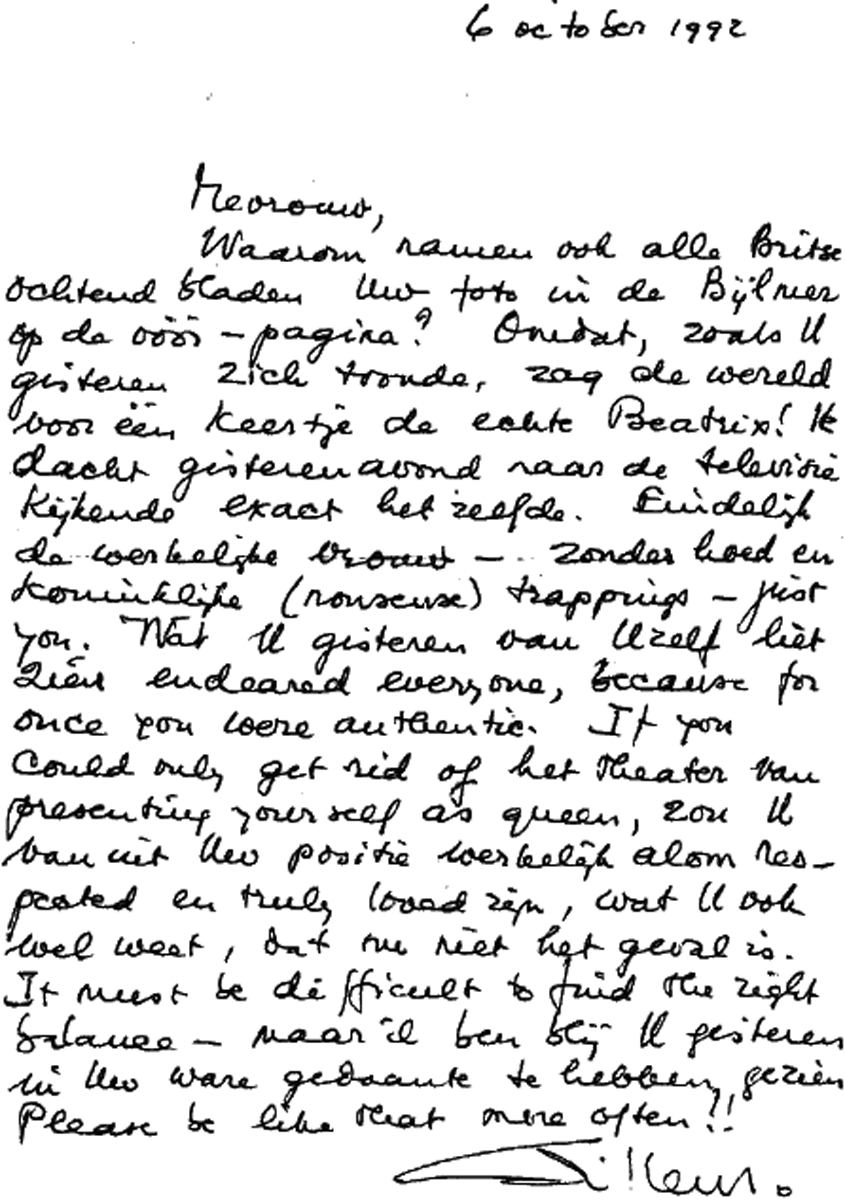 6 october 1992
Mevrouw,
Waarom namen ook alle Britse
ochtend bladen Uw foto in de Bijlmer
op de vóór-pagina? Omdat, zoals U
gisteren zich toonde, zag de wereld
voor één keertje de echte Beatrix! Ik
dacht gisterenavond naar de televisie
kijkende exact het zelfde. Eindelijk
de werkelijke vrouw — zonder hoed en
koninklijke (nonsense) trappings — just
you. Wat U gisteren van Uzelf liet
zien endeared everyone, because for
once you were authentic. If you
could only get rid of het theater van
presenting yourself as queen, zou U
vanuit Uw positie werkelijk alom res-
pected en truly loved zijn, wat U ook
wel weet, dat nu niet het geval is.
It must be difficult to find the right
balance — maar ik ben blij U gisteren
in Uw ware gedaante te hebben gezien
Please be like that more often!!